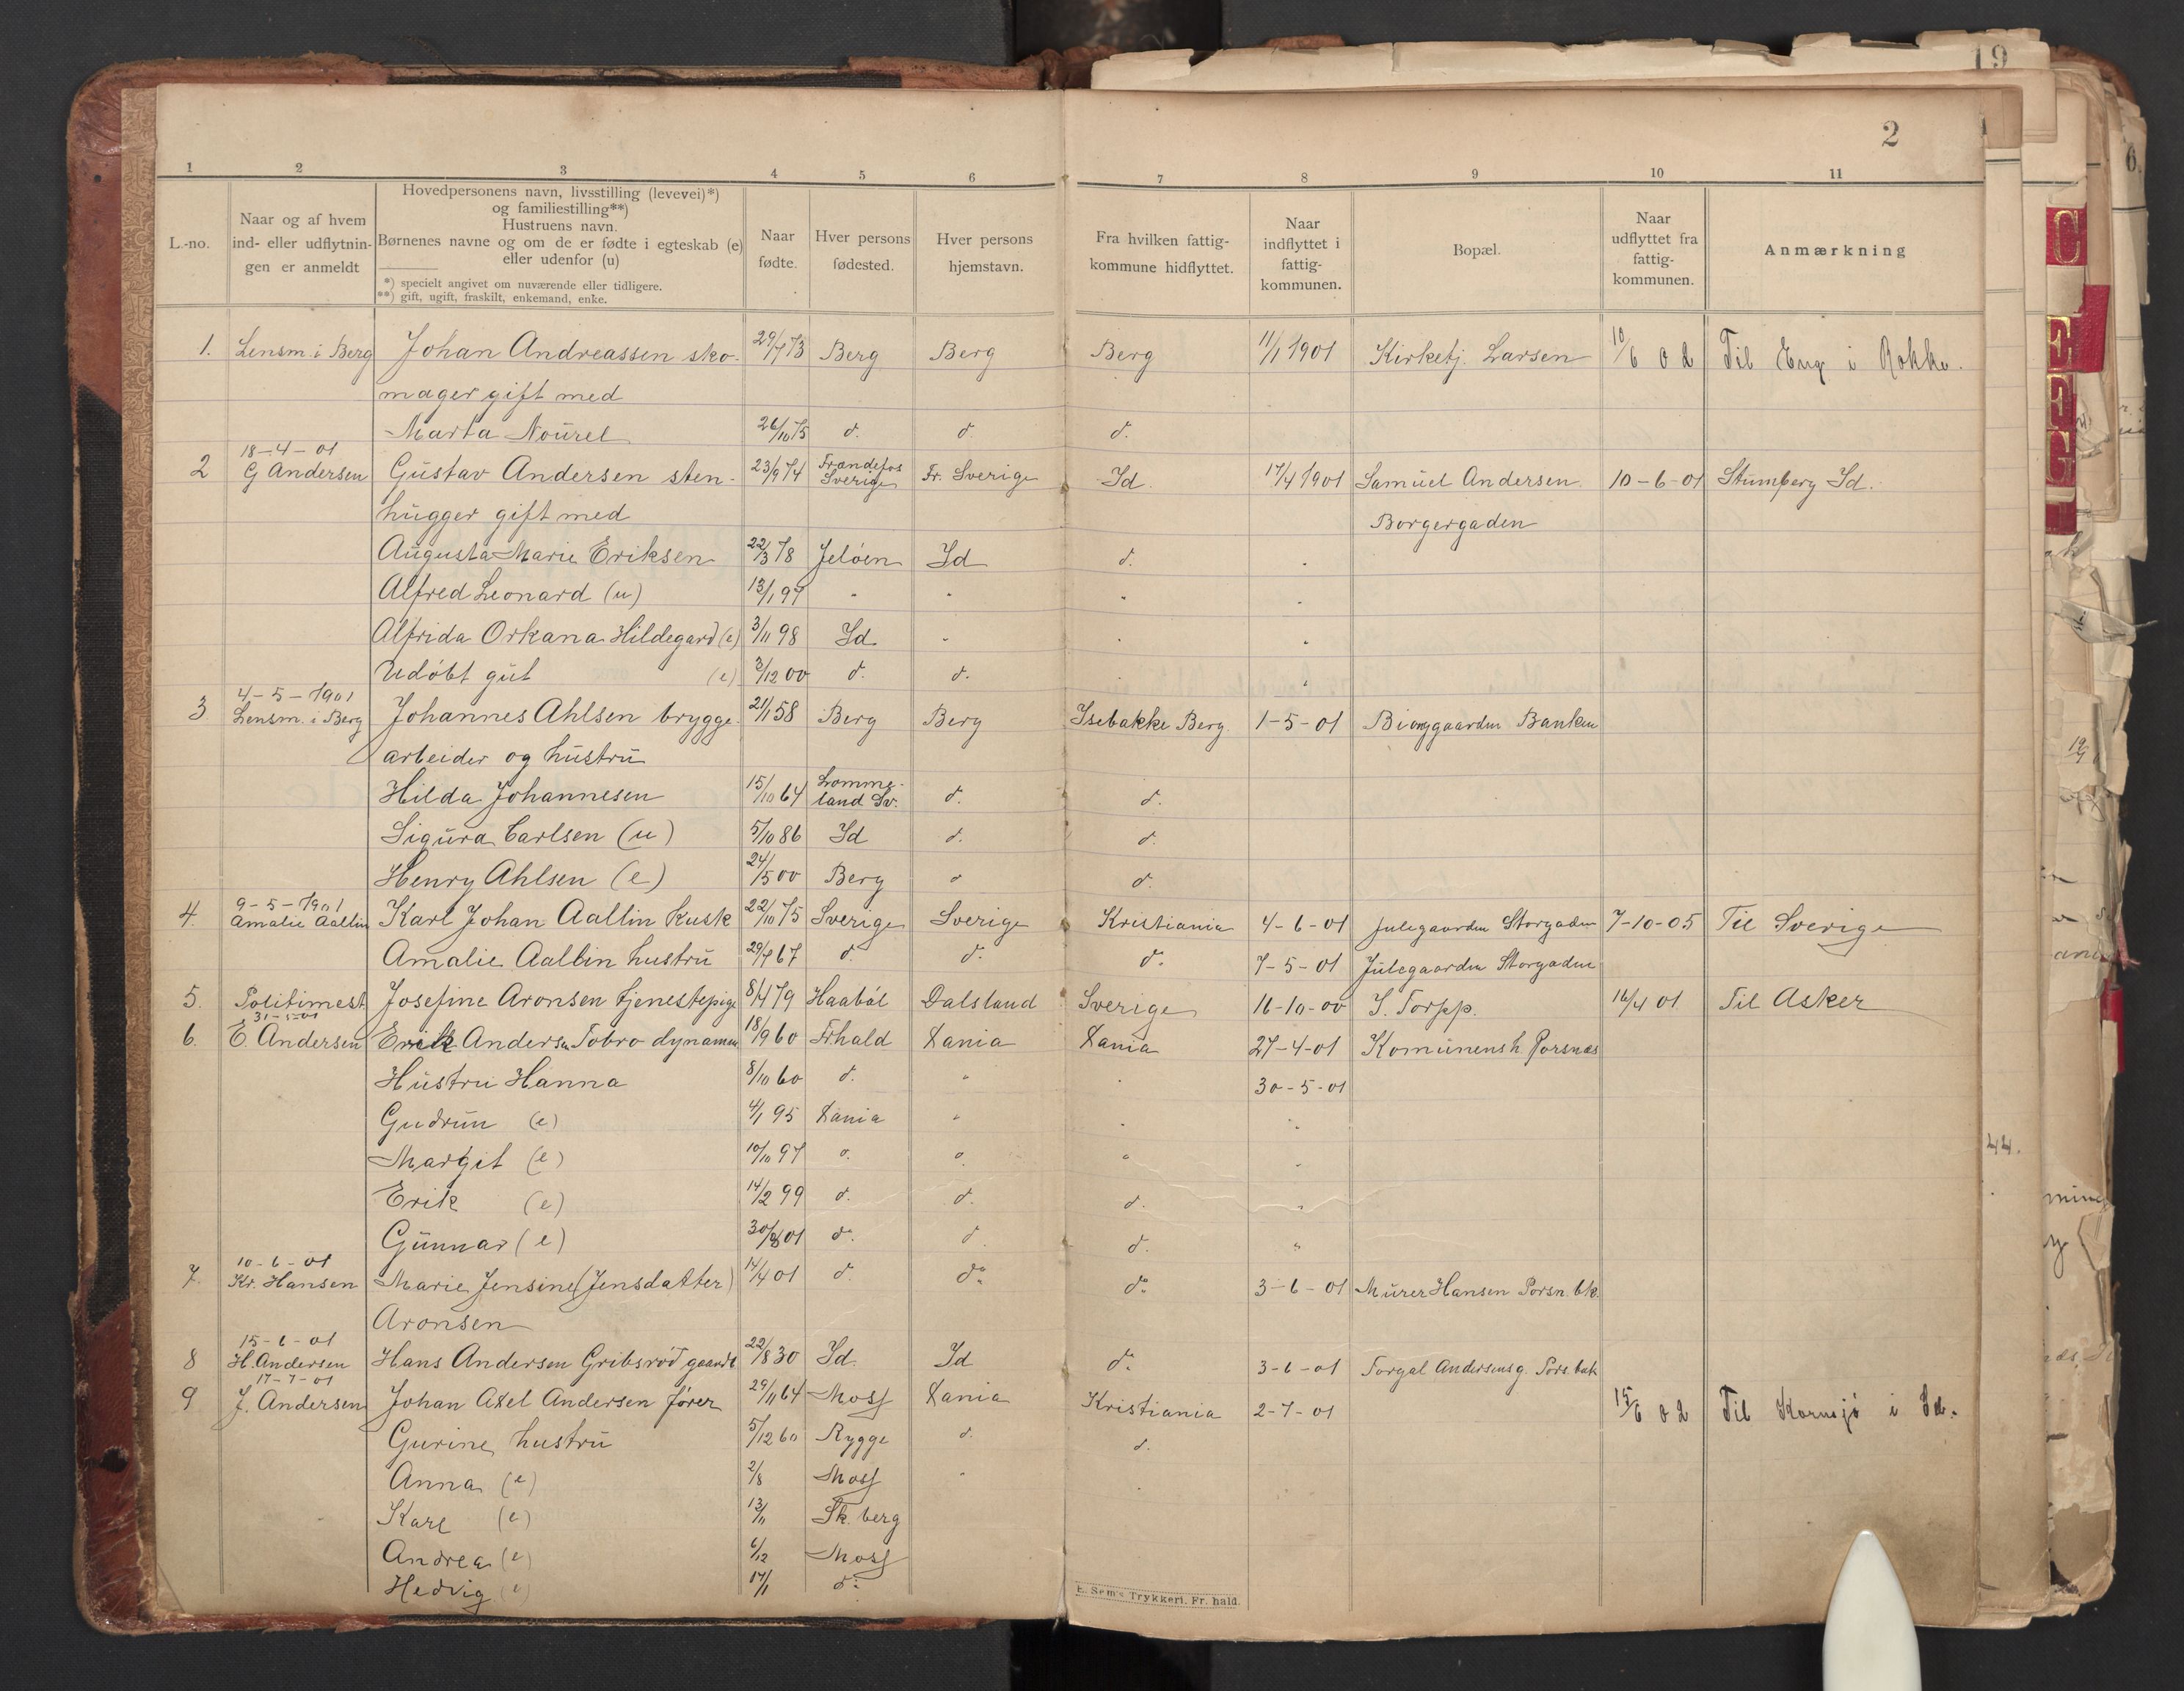 2
1 2 3 4 5 6 7 8 9 10 11
L.-no.
Naar og af hvem
ind- eller udflytnin-
gen er anmeldt
Hovedpersonens navn, livsstilling (levevei)*)
og familiestilling**)
Hustruens navn.
Børnenes navne og om de er fødte i egteskab (e)
eller udenfor (u)
*) specielt angivet om nuværende eller tidligere.
**) gift, ugift, fraskilt, enkemand, enke.
Naar
fødte.
Hver persons
fødested.
Hver persons
hjemstavn.
Fra hvilken fattig-
kommune hidflyttet.
Naar
indflyttet i
fattig-
kommunen.
Bopæl.
Naar
udflyttet fra
fattig-
kommunen.
Anmærkning
1. Lensm. i Berg Johan Andreassen sko- 29/7 73 Berg Berg Berg 11/1 1901 Kirketj. Larsen 10/6 02 Til Eng i Rokke.
mager gift med
Marta Nourel 26/10 75 d. d. d.
18-4-01
2 G Andersen Gustav Andersen sten- 23/9 74 Frændefos Sverige Fr. Sverige Id. 17/4 1901 Samuel Andersen 10-6-01 Stumberg Id.
hugger gift med Borgergaden
Augusta Marie Eriksen 22/3 78 Jeløen Id d. "
Alfred Leonard (u) 13/1 97 " " " "
Alfrida Orkana Hildegard (e) 3/11 98 Id " " "
Udøbt gut (e) 2/12 00 d. d. " "
4-5-1901
3 Lensm. i Berg Johannes Ahlsen brygge- 21/1 58 Berg Berg Isebakke Berg 1-5-01 Banken
arbeider og hustru
Hilda Johannesen 15/10 64 Lomme-land Sv. d. d.
Sigura Carlsen (u) 5/10 86 Id d. d.
Henry Ahlsen (e) 24/5 00 Berg d d.
9-5-1901
4. Amalie Aallin Karl Johan Aallin kusk 22/10 75 Sverige Sverige Kristiania 4-6-01 Julegaarden Storgaden 7-10-05 Til Sverige
Amalie Aallin hustru 29/7 67 d. d. d. 7-5-01 Julegaarden Storgaden
5. Politimest. Josefine Aronsen tjenestepige 8/4 79 Haabøl Dalsland Sverige 16-10-00 S. Torpp. 16/4 01 Til Asker
31-5-01
6. E. Andersen Erik Andersen Tobro 18/9 60 Frhald Xania Xania 27-4-01 Komunensh. Porsnæs
Hustru Hanna 8/10 60 d. " " 30-5-01
Gudrun (e) 4/1 95 Xania " " "
Margit (e) 10/10 97 d. d. " "
Erik (e) 14/2 99 d. d. d. "
Gunnar (e) 01 d. d d. "
10-6-01
7. Kr. Hansen Marie Jensine (Jensdatter) 14/4 01 d. d. d. 3-6-01 Murer Hansen Porsn. bk.
Aronsen
15-6-01
8 H. Andersen Hans Andersen Gribsrød gaardb. 22/8 30 Id. Id d. 3-6-01 Torgal Andersens g. Pors. bak
17-7-01
9 J. Andersen Johan Axel Andersen fører 29/11 64 Moss Xania Kristiania 2-7-01 15/6 02 Til Kornsjø i Id.
Gurine hustru 5/12 60 Rygge d. d.
Anna (e) 2/8 Moss " "
Karl (e) 13/11 Sk. berg
Andrea (e) 6/12 Moss
Hedvig (e) 17/1 d:
E. Sem's Trykkeri, Fr.hald.
19
6
44.